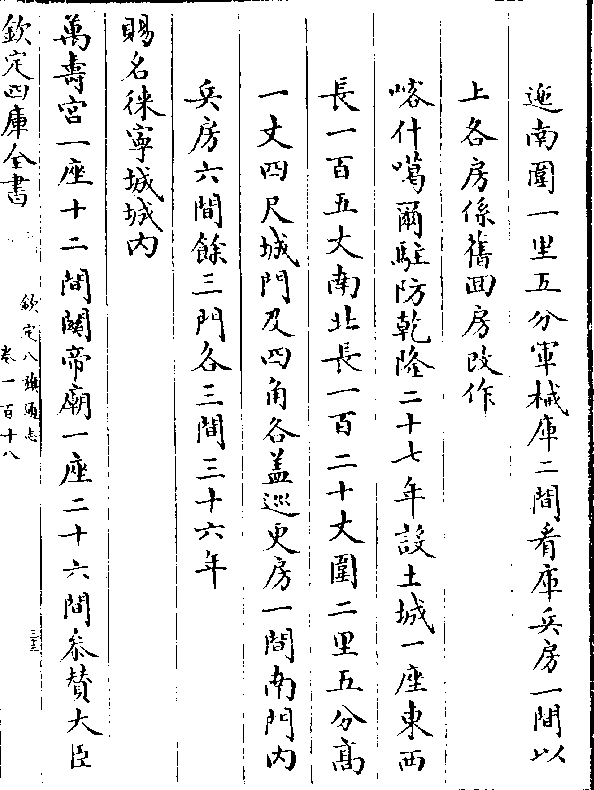 迤南圍一里五分軍械庫二間看庫兵房一間以
上各房係舊回房改作
喀什噶爾駐防乾隆二十七年設土城一座東西
長一百五丈南北長一百二十丈圍二里五分高
一丈四尺城門及四角各盖巡更房一間南門内
兵房六間餘三門各三間三十六年
賜名徠寧城城内
萬壽宫一座十二間關帝廟一座二十六間叅賛大臣
欽定四庫全書
欽定八旗通志
卷一百十八
三十三